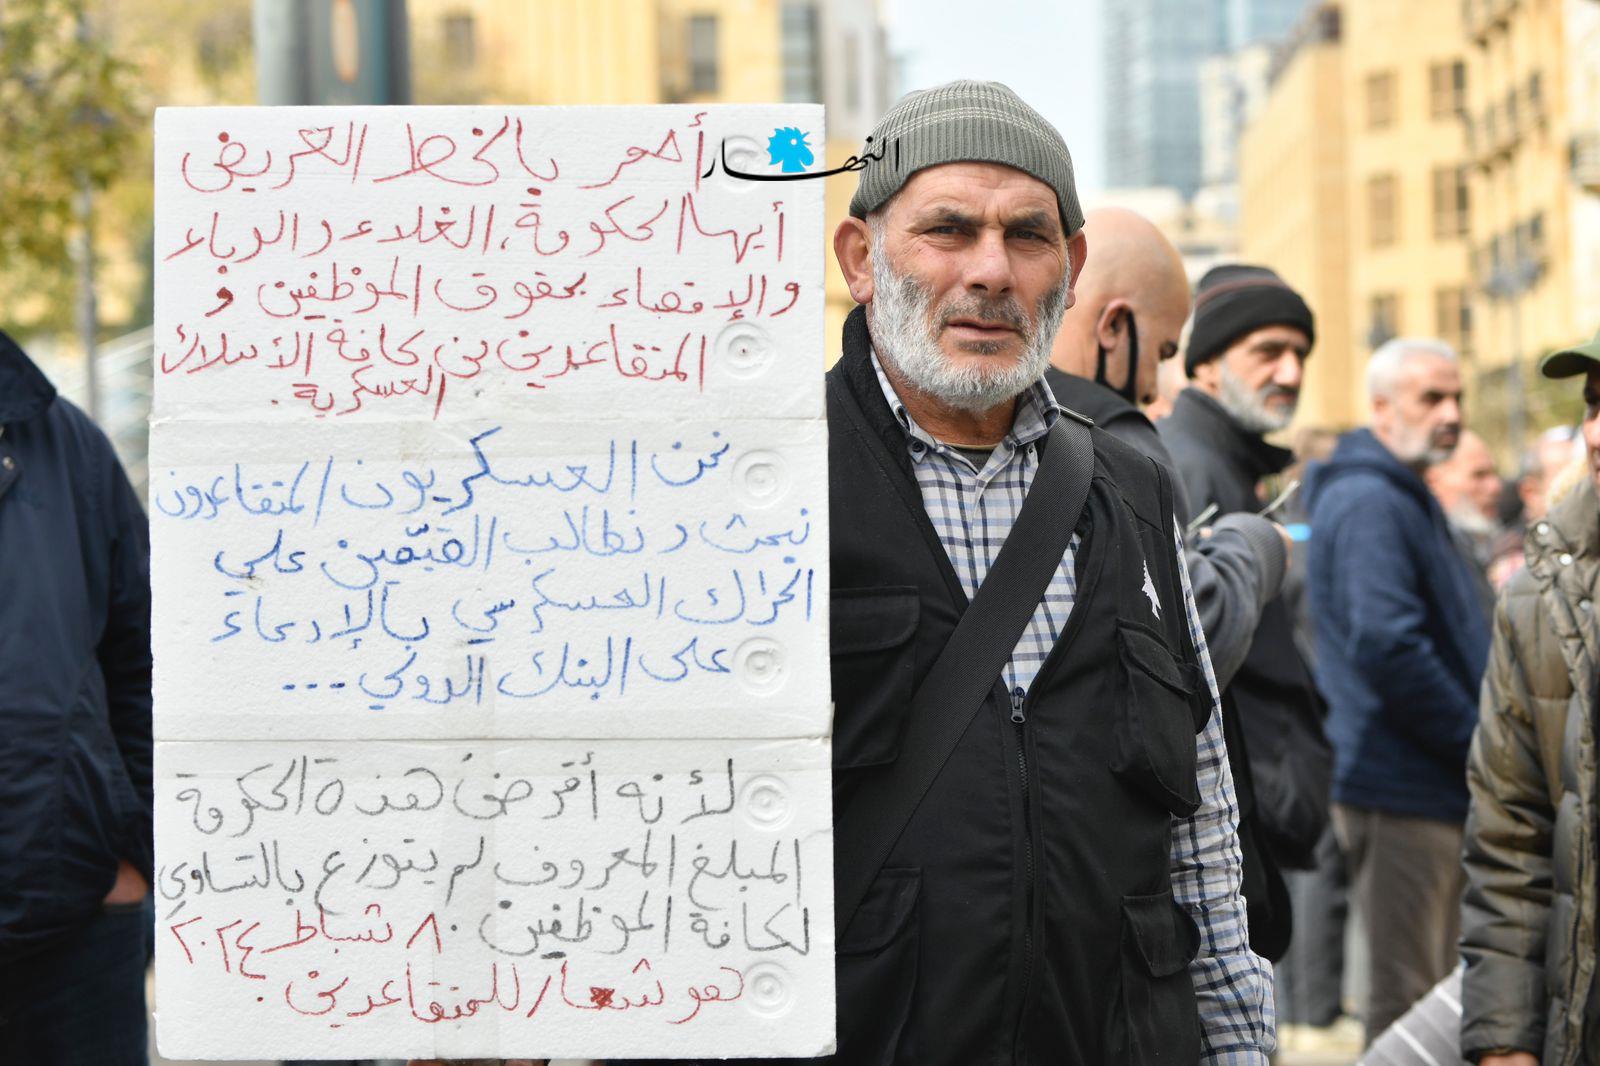 أحمر بالخط العريض
النهار
أيها الحكومة، الغلاء والوباء
والإقصاء بحقوق الموظفين و
المتقاعدين من كافة الأسلاك
العسكرية.
نحن العسكريون المتقاعدون
نبحث و نطالب القيّمين علي
الحراك العسكري بالإدعاء
على البنك الدولي ...
لأنه أقرض هذه الحكومة
المبلغ المعروف لم يتوزع بالتساوي
لكافة الموظفين ٨٠ شباط ٢٠٢٤
هو شعار للمتقاعدين.